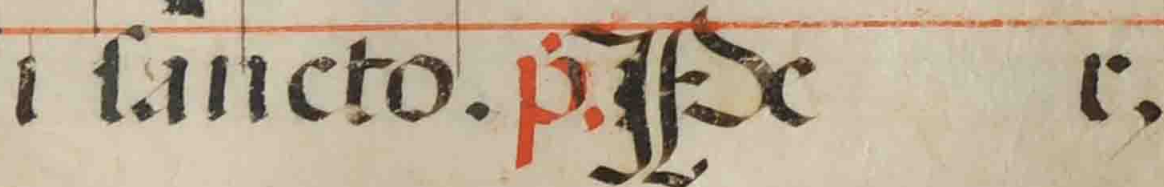 i ſancto. ṗ. Pe r,